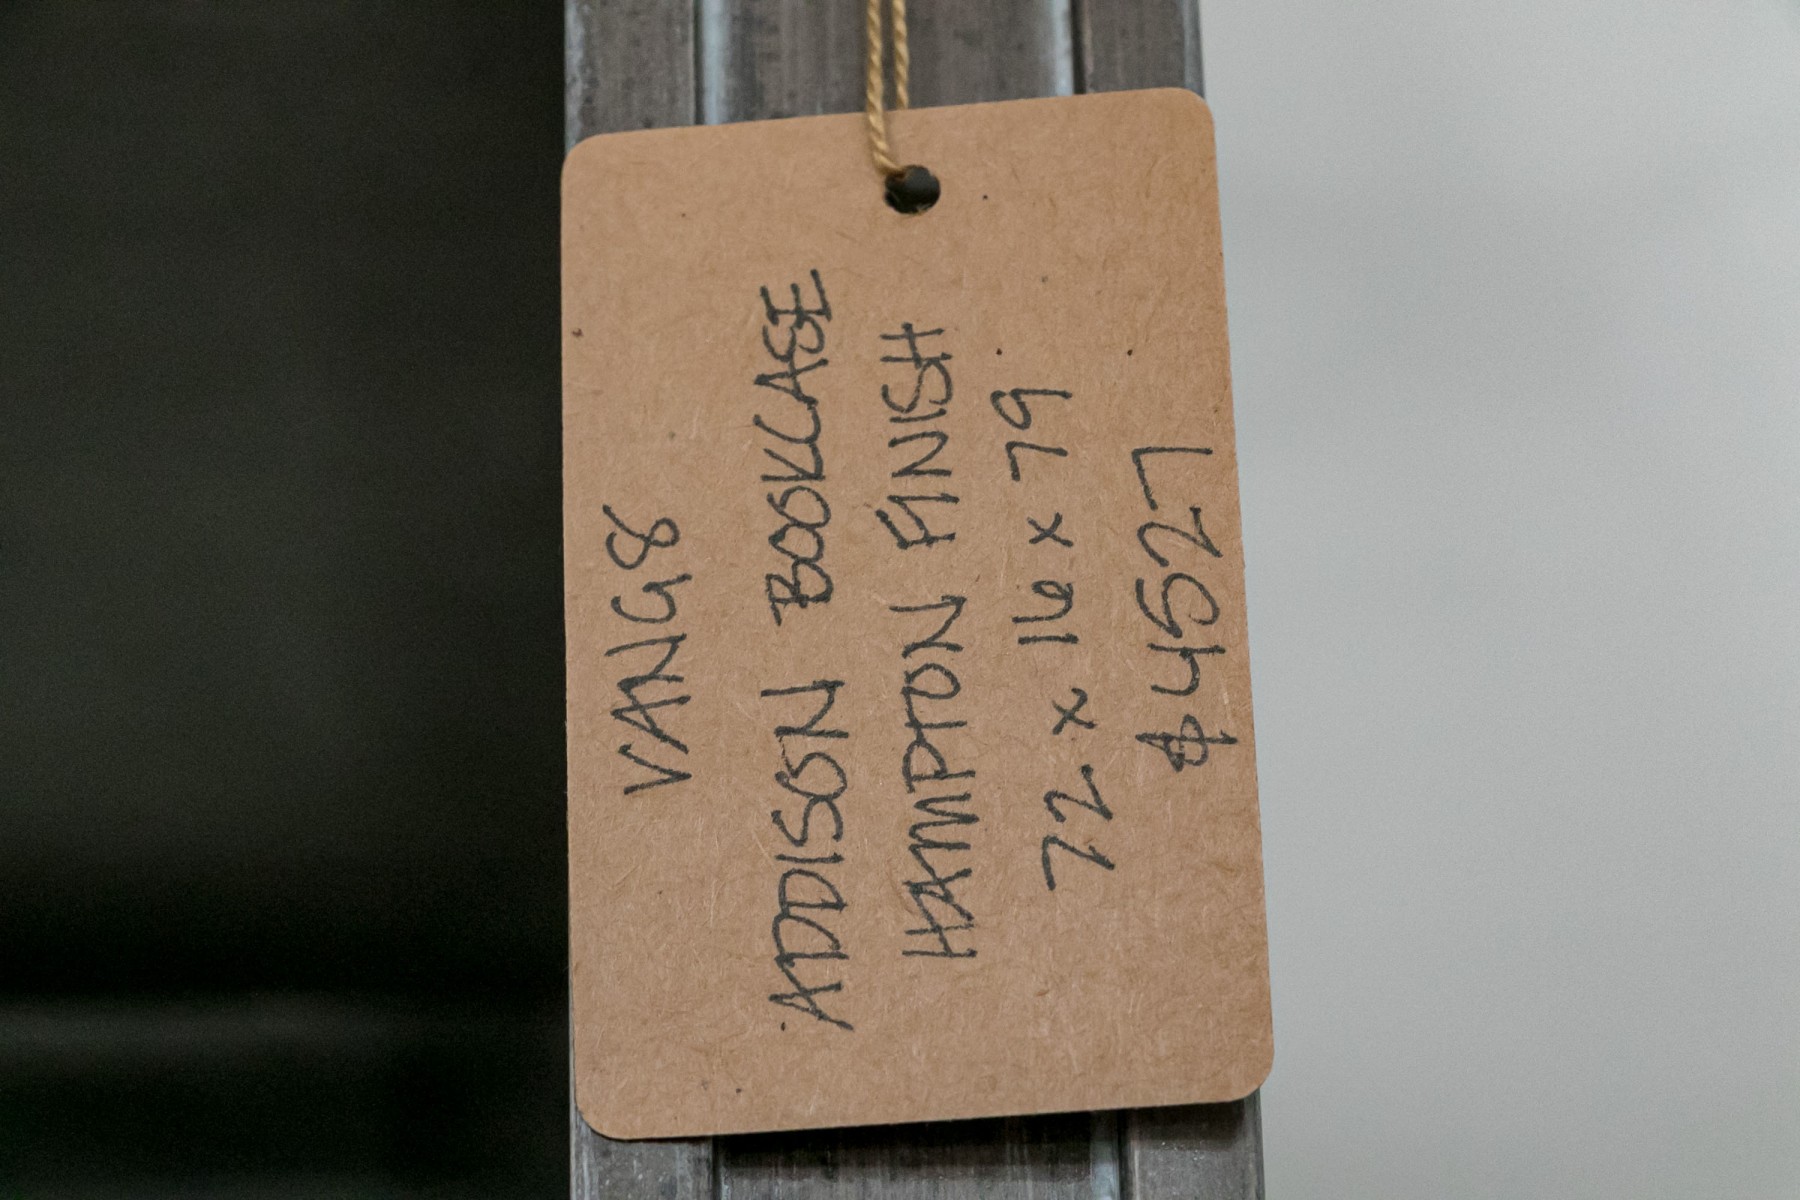 VANG8
ADDISON BOOKCASE
HAMPTON FINISH
72 x 16 x 79
$4527